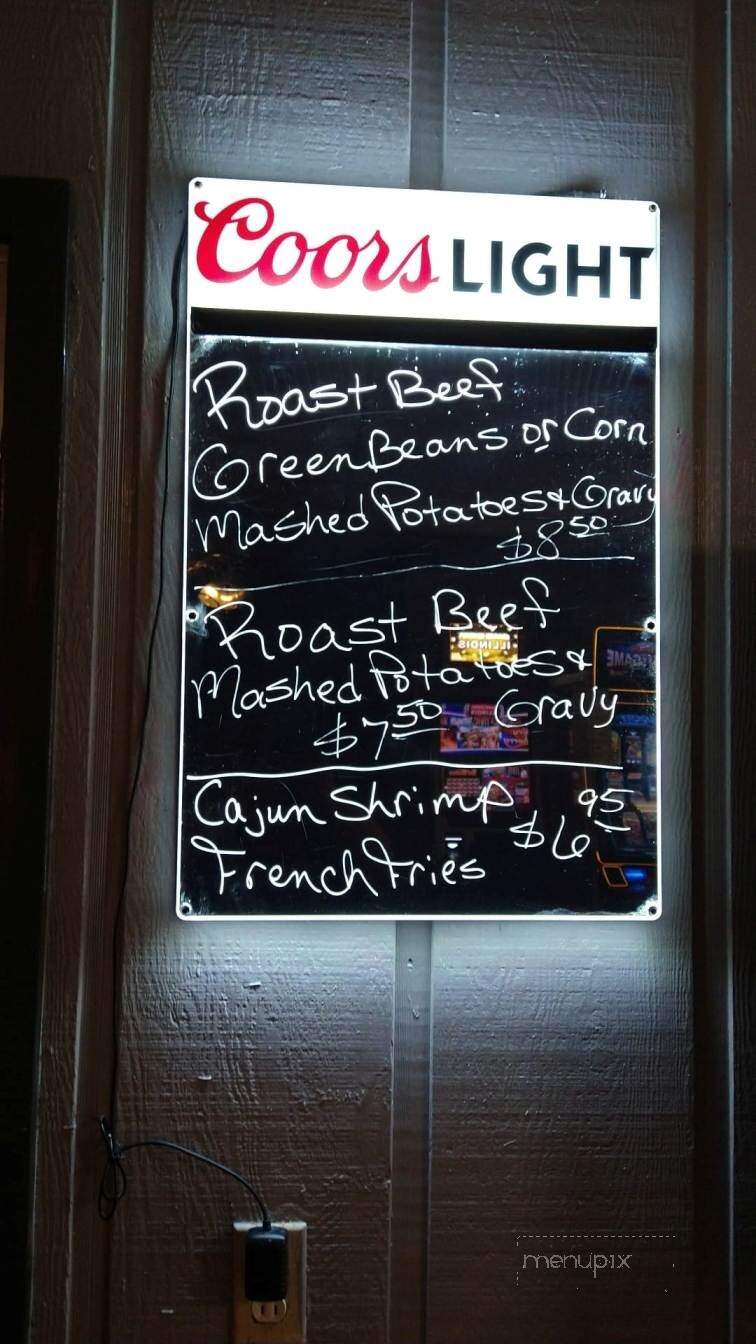 Coors LIGHT
Roast Beef
Green Beans or Corn
Mashed Potatoes & Gravy
$8.50
Roast Beef
ILLINOIS
Mashed Potatoes &
$7.50 Gravy
Cajun Shrimp $6.95
French Fries
menupix